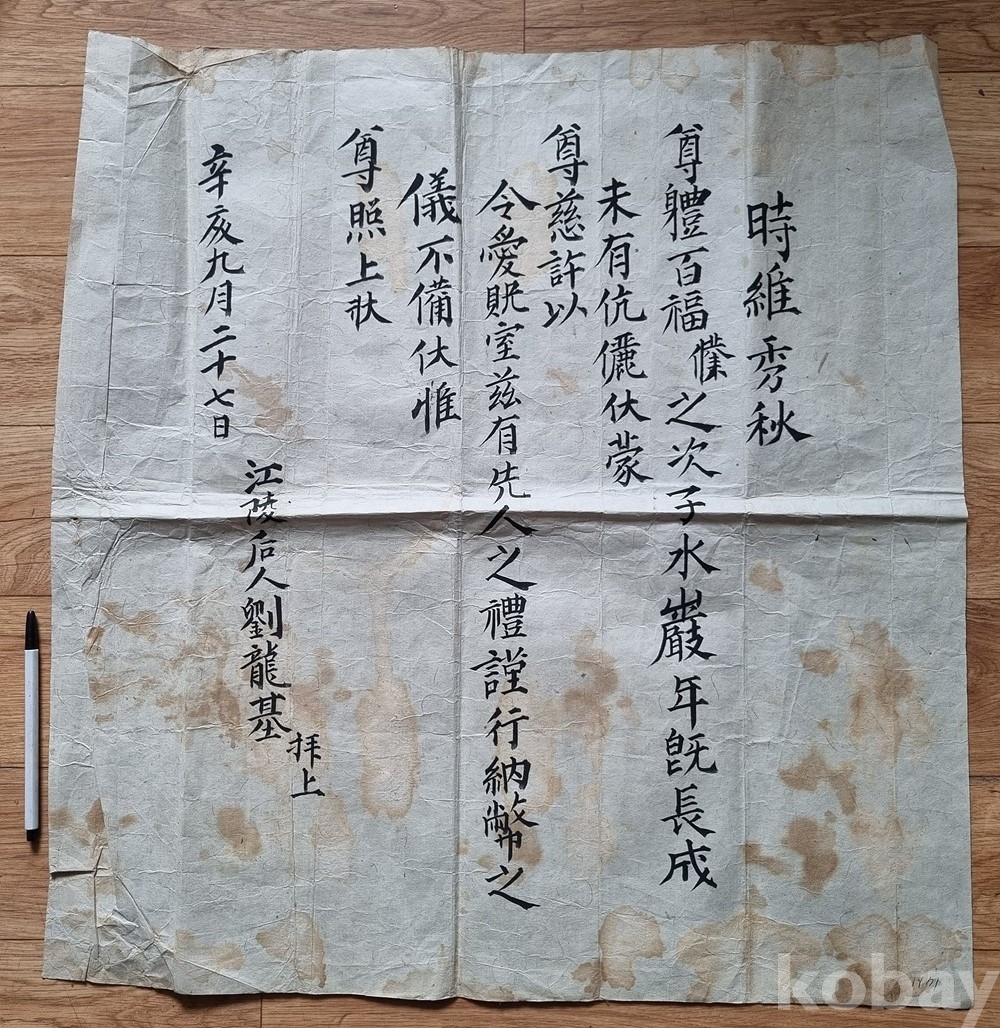 時維秀秋
尊軆百福僕之次子水巖年旣長成
未有伉儷伏蒙
尊慈許以
令愛貺室玆有先人之禮謹行納幣之
儀不備伏惟
尊照上狀
辛亥九月二十七日
江陵后人劉龍基
拜上
kobay